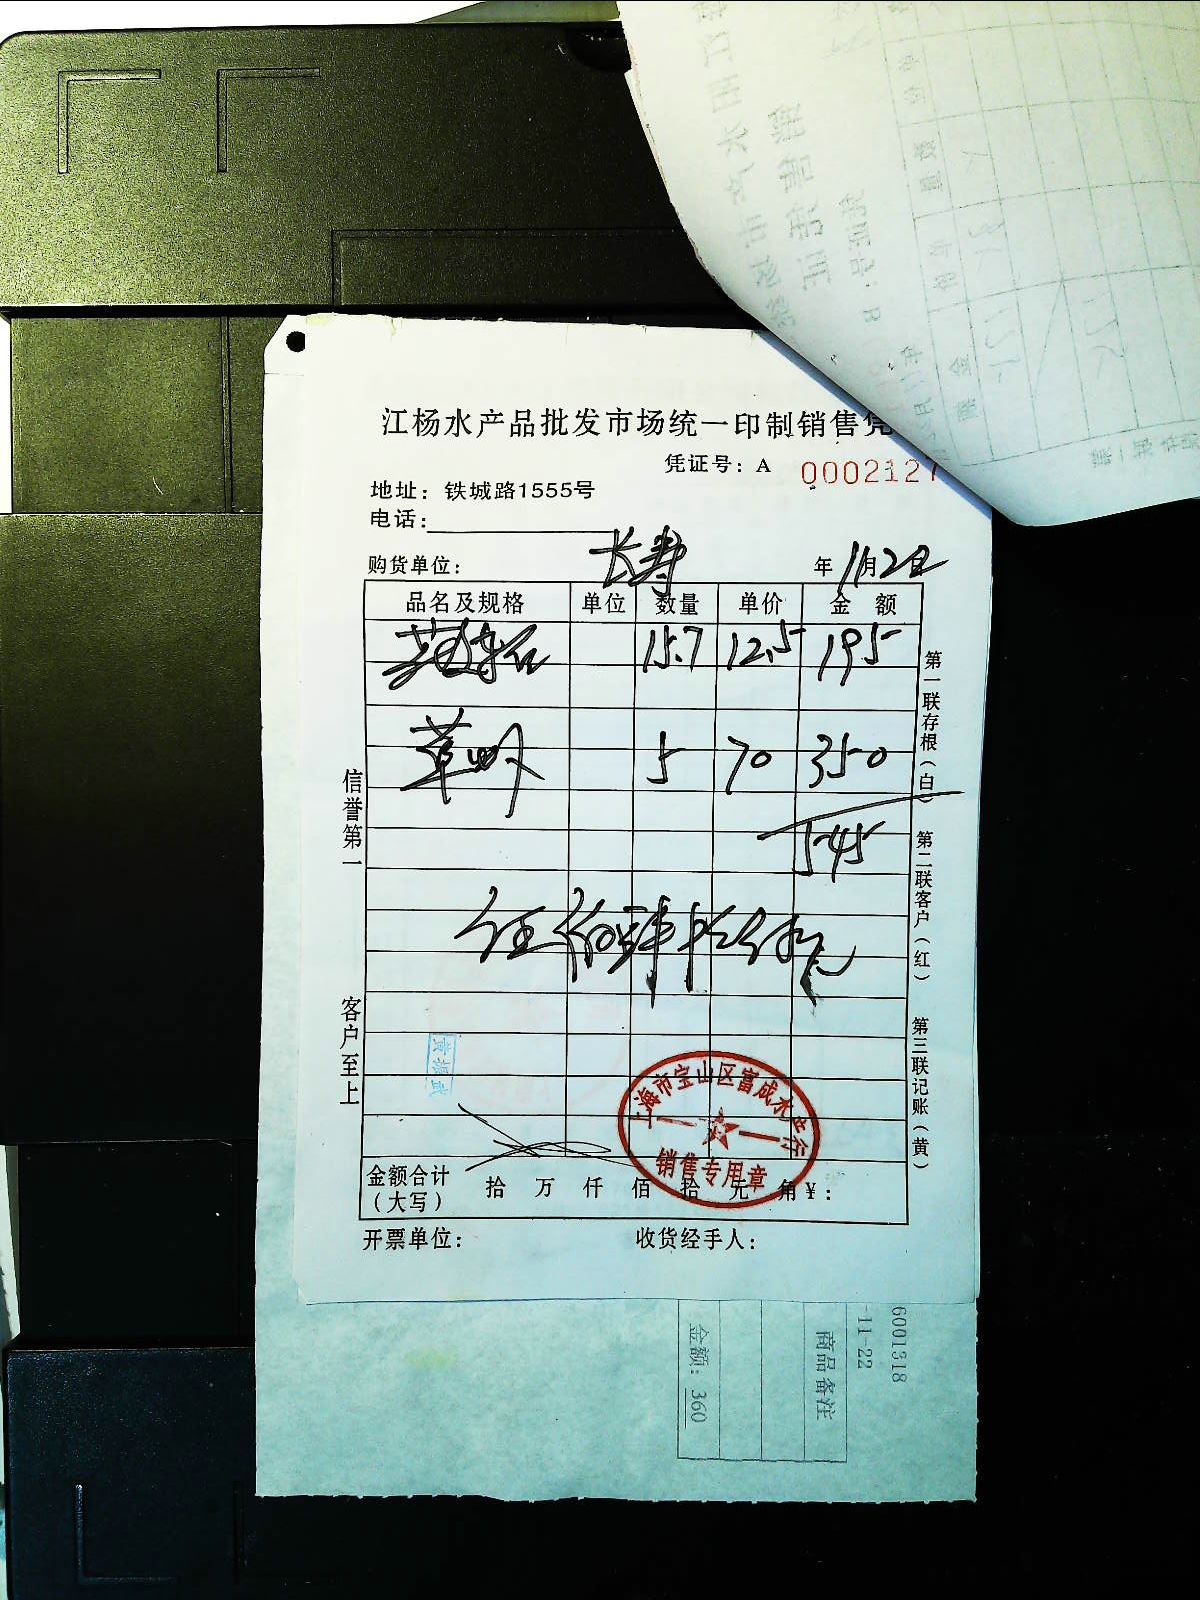 江杨水产品批发市场统一印制销售凭
凭证号：A 0002127
地址：铁城路1555号
电话：
购货单位： 长寿 年 11月2日
品名及规格 单位 数量 单价 金 额
15.7 12.5 195
草虾 5 70 350
545
伍佰肆拾伍元
信誉第一
客户至上
第一联存根（白）
第二联客户（红）
第三联记账（黄）
上海市宝山区富成水产行
销售专用章
金额合计（大写） 拾 万 仟 佰 拾 元 角 ¥：
开票单位： 收货经手人：
6001318
-11-22
商品备注
金额：360